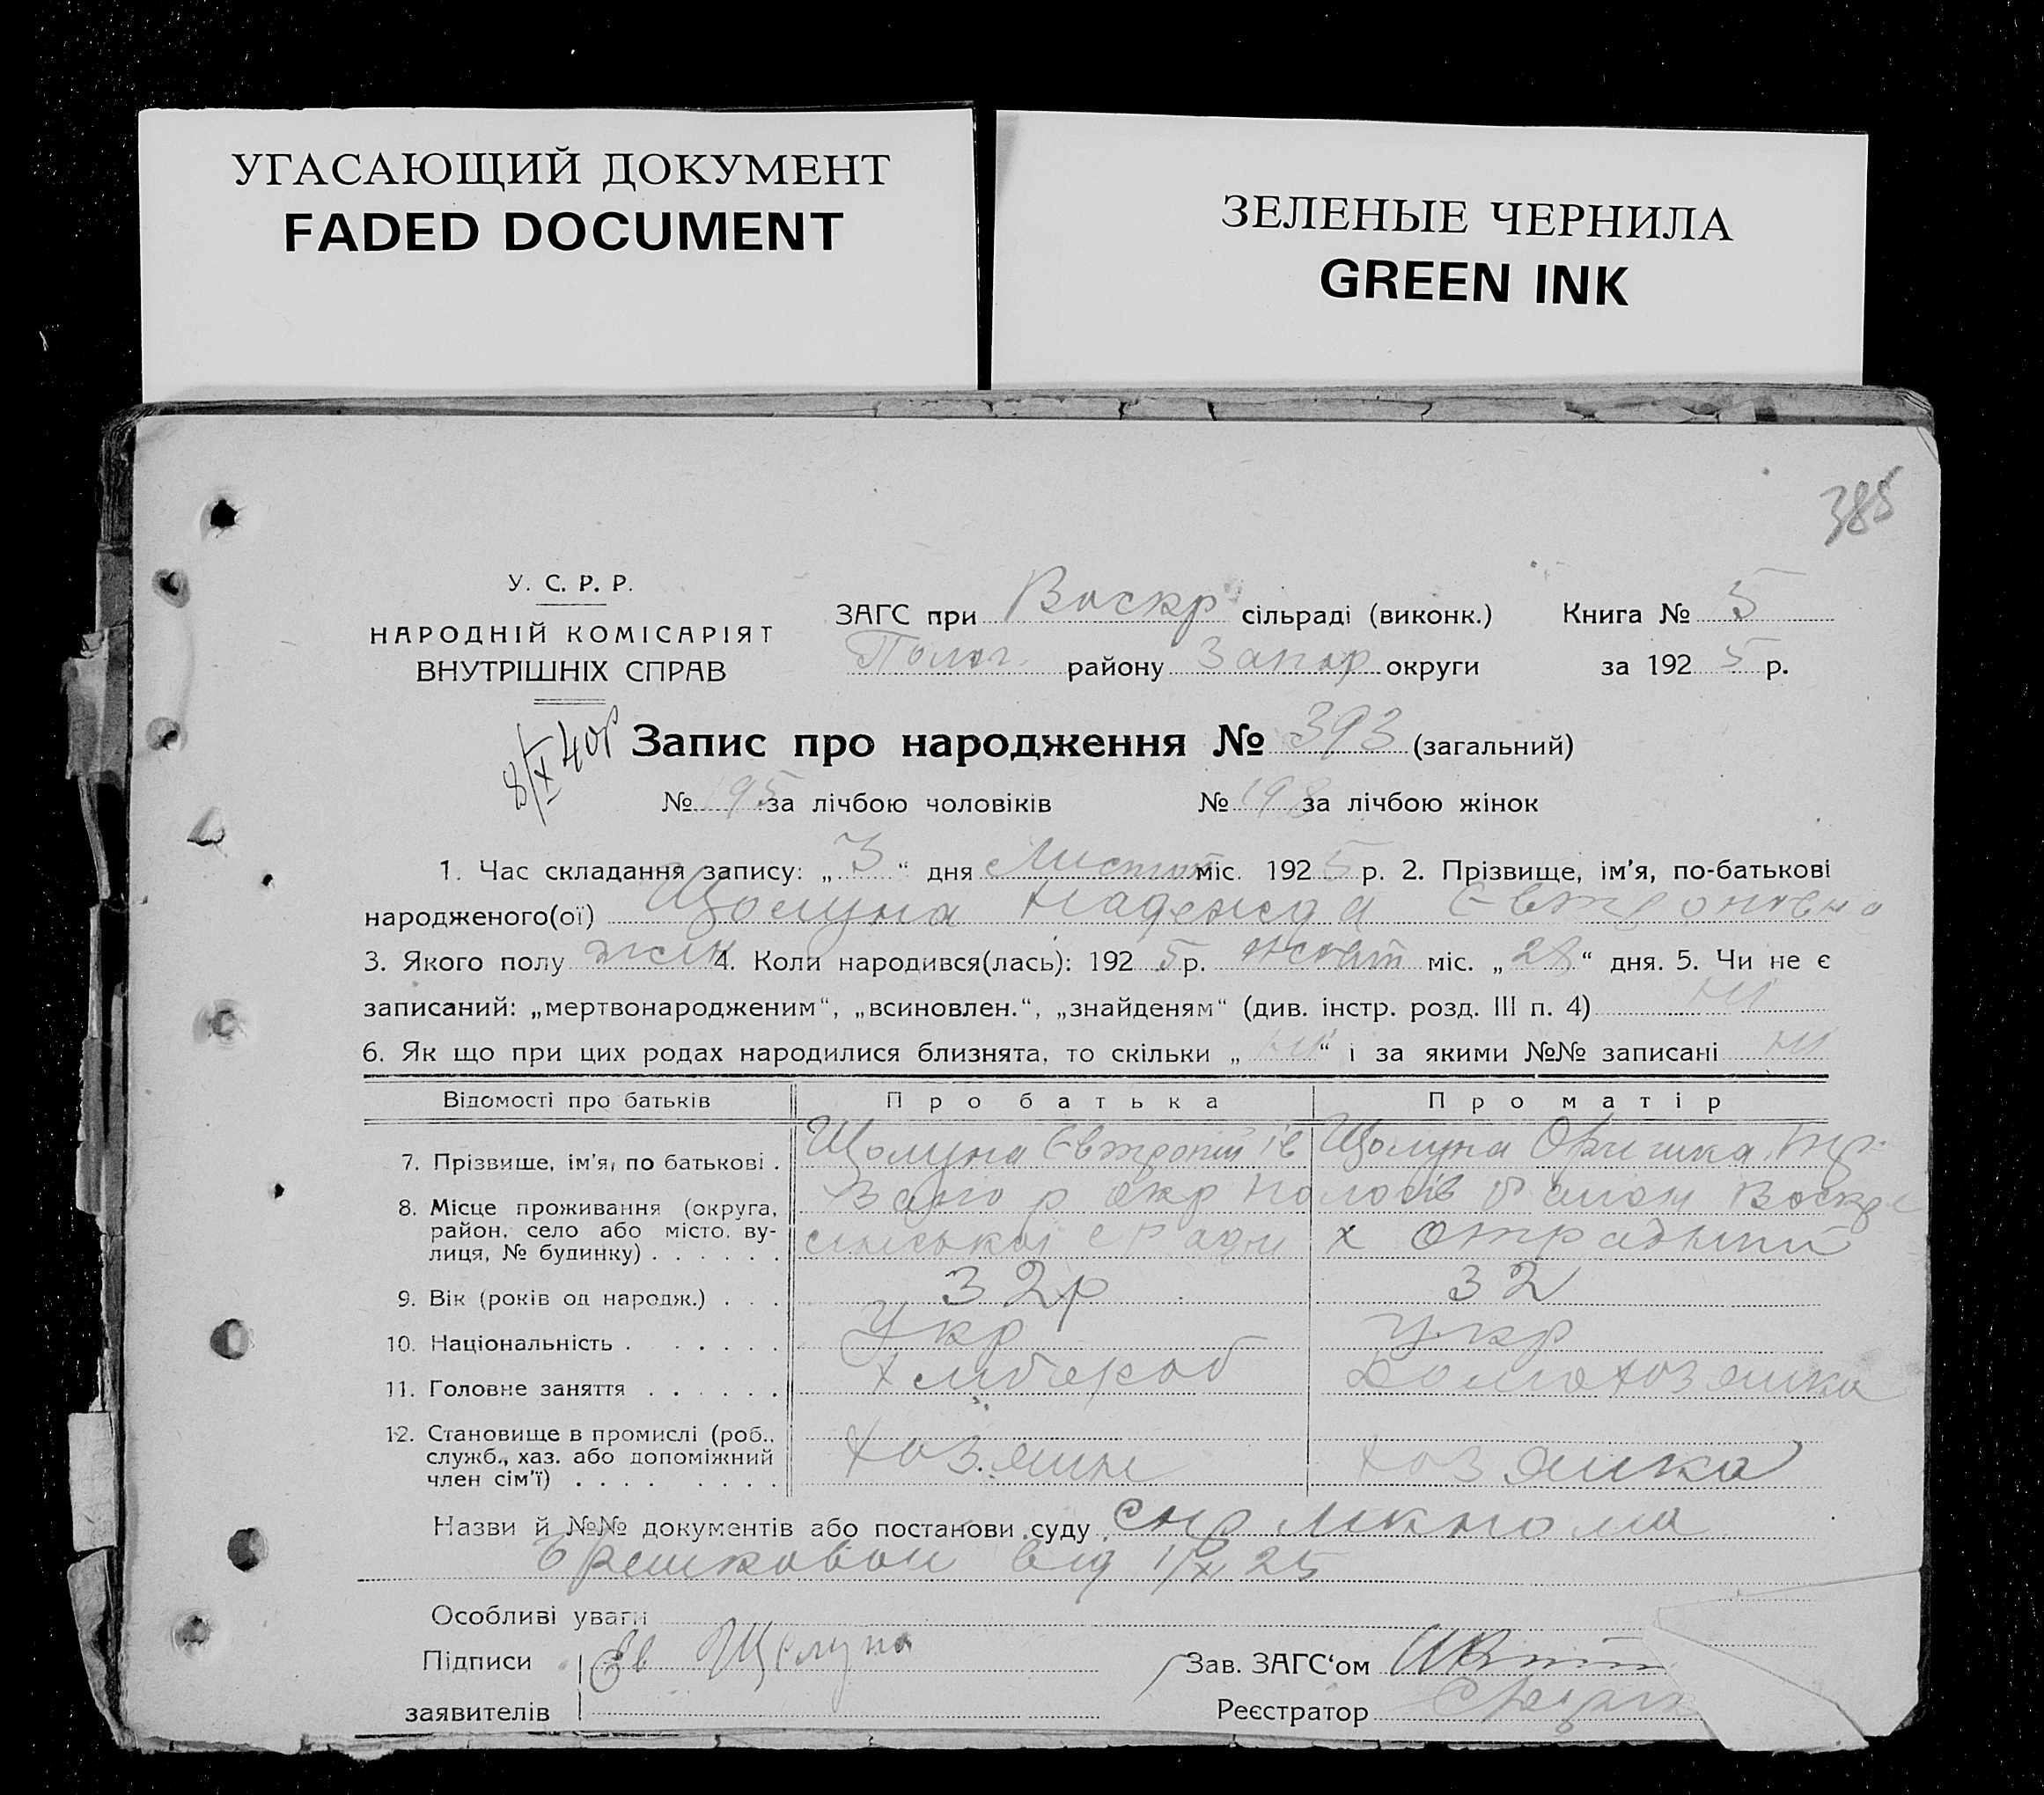 УГАСАЮЩИЙ ДОКУМЕНТ
FADED DOCUMENT
ЗЕЛЕНЫЕ ЧЕРНИЛА
GREEN INK
385
У. С. Р. Р.
НАРОДНІЙ КОМІСАРІЯТ
ВНУТРІШНІХ СПРАВ
ЗАГС при Воскр сільраді (виконк.) Книга № 5
Полог. району Запор округи за 192 5 р.
8/X 40р
Запис про народження № 393 (загальний)
№ 195 за лічбою чоловіків № 198 за лічбою жінок
1. Час складання запису: „ 3 “ дня Листоп міс. 192 5 р. 2. Прізвище, ім’я, по-батькові
народженого(ої) Щолупа Надежда
3. Якого полу жін 4. Коли народився(лась): 192 5 р. жовт міс. „ 28 “ дня. 5. Чи не є
записаний: „мертвонародженим“, „всиновлен.“, „знайденям“ (див. інстр. розд. III п. 4) ні
6. Як що при цих родах народилися близнята, то скільки „ ні “ і за якими №№ записані ні
Відомості про батьків Про батька Про матір
7. Прізвише, ім’я, по батькові . Щолупа Євтропій Ів Щолупа
8. Місце проживання (округа, Запор окр Пологів район Воскре
район, село або місто, ву-
лиця, № будинку) . . . . . . сенської х Отрадный
9. Вік (років од народж.) . . . 32р 32
10. Національність . . . . . . . Укр Укр
11. Головне заняття . . . . . . Хлібороб Домохозяйка
12. Становище в промислі (роб.,
служб., хаз. або допоміжний
член сім’ї) . . . . . . . . Хозяин хозяйка
Назви й №№ документів або постанови суду
від 1/X 25
Особливі уваги
Підписи Ев Щелупа Зав. ЗАГС‘ом
заявителів Реєстратор